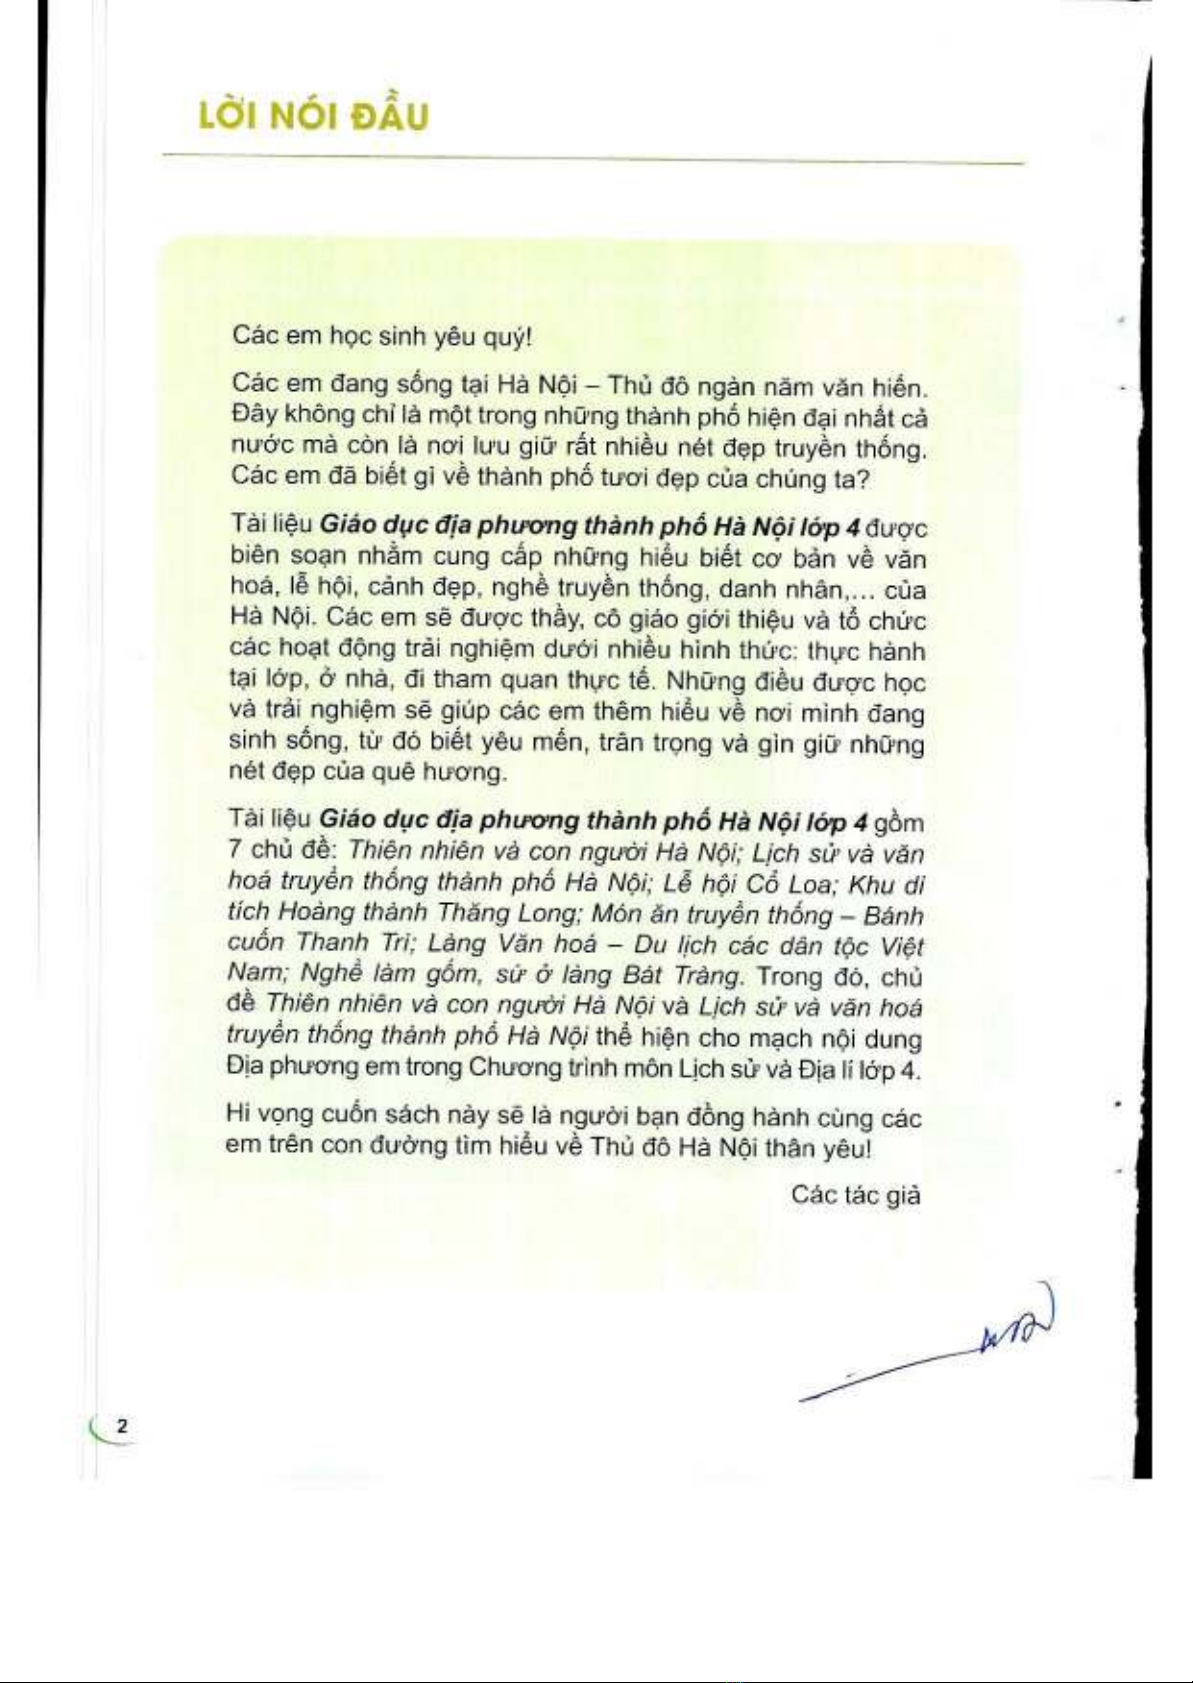 LỜI NÓI ĐẦU
Các em học sinh yêu quý!
Các em đang sống tại Hà Nội – Thủ đô ngàn năm văn hiến.
Đây không chỉ là một trong những thành phố hiện đại nhất cả
nước mà còn là nơi lưu giữ rất nhiều nét đẹp truyền thống.
Các em đã biết gì về thành phố tươi đẹp của chúng ta?
Tài liệu Giáo dục địa phương thành phố Hà Nội lớp 4 được
biên soạn nhằm cung cấp những hiểu biết cơ bản về văn
hoá, lễ hội, cảnh đẹp, nghề truyền thống, danh nhân,... của
Hà Nội. Các em sẽ được thầy, cô giáo giới thiệu và tổ chức
các hoạt động trải nghiệm dưới nhiều hình thức: thực hành
tại lớp, ở nhà, đi tham quan thực tế. Những điều được học
và trải nghiệm sẽ giúp các em thêm hiểu về nơi mình đang
sinh sống, từ đó biết yêu mến, trân trọng và gìn giữ những
nét đẹp của quê hương.
Tài liệu Giáo dục địa phương thành phố Hà Nội lớp 4 gồm
7 chủ đề: Thiên nhiên và con người Hà Nội; Lịch sử và văn
hoá truyền thống thành phố Hà Nội; Lễ hội Cổ Loa; Khu di
tích Hoàng thành Thăng Long; Món ăn truyền thống – Bánh
cuốn Thanh Trì; Làng Văn hoá – Du lịch các dân tộc Việt
Nam; Nghề làm gốm, sứ ở làng Bát Tràng. Trong đó, chủ
đề Thiên nhiên và con người Hà Nội và Lịch sử và văn hoá
truyền thống thành phố Hà Nội thể hiện cho mạch nội dung
Địa phương em trong Chương trình môn Lịch sử và Địa lí lớp 4.
Hi vọng cuốn sách này sẽ là người bạn đồng hành cùng các
em trên con đường tìm hiểu về Thủ đô Hà Nội thân yêu!
Các tác giả
2